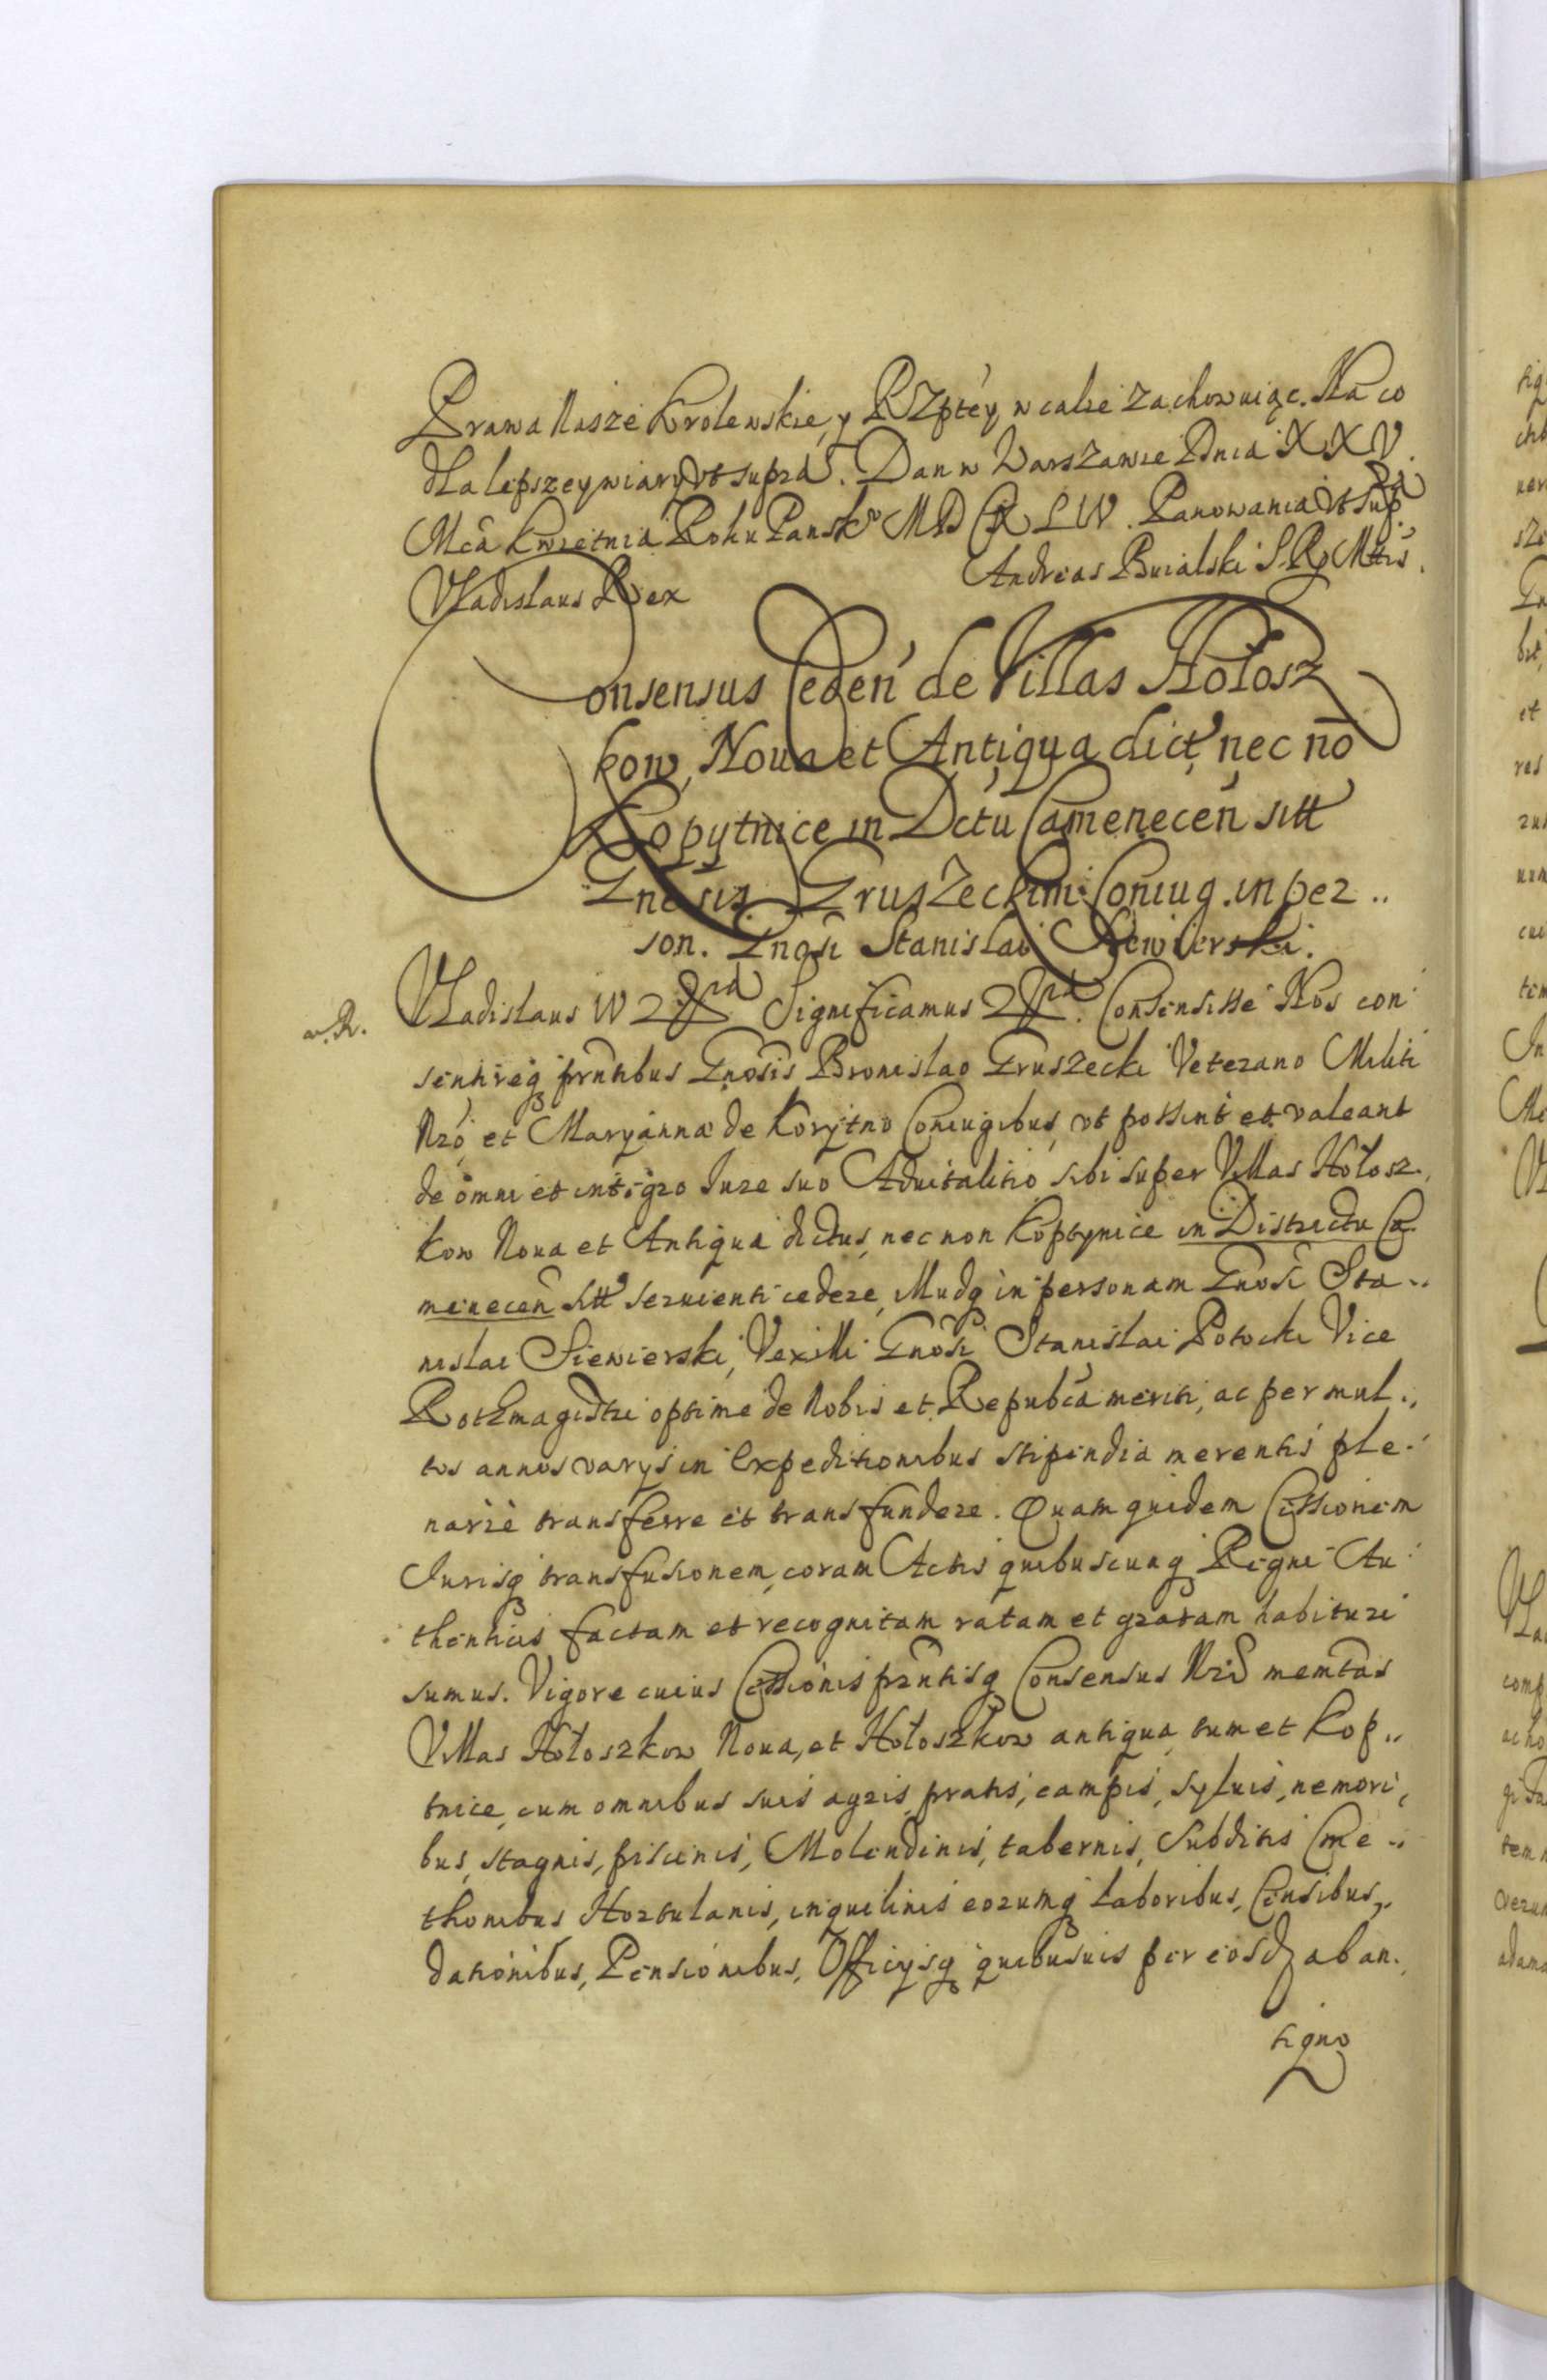 Prawa Nasze Krolewskie, y RZptey w calie zachowuiąc. Na co
dla lepszey wiary vt supra. Dan w Warszawie Dnia XXV.
Mca kwietnia Roku Pansko MDCXLIV. Panowania vt supra
Vladislaus Rex Andreas Buialski S R Mttis.
Consensus Ceden de Villas Hołosz
kow, Noua et Antiqua dict, nec nō
Kopytnice in Dctu Camenecen sitt
Gnosis Gruszeckim Coniug. in per..
son. Gnosi Stanislai Siewierski.
a. R.
Vladislaus IV &c Significamus &c. Consensisse Nos con
sentireq prntibus Gnosis Bronislao Gruszecki Veterano Militi
Nro, et Maryanna de Korytno Coniugibus, vt possint et valeant
de omni et integro Iure suo Aduitalitio sibi super Villas Hołosz.
kow Noua et Antiqua dictus, nec non Koptynice in Districtu Ca
menecen sitt seruienti cedere, Illudq in personam Gnosi Sta..
nislai Siewierski, Vexilli Gnosi Stanislai Potocki Vice
Rotmagistri optime de Nobis et Republca meriti, ac per mul.,
tos annos varys in Expeditionibus stipendia merentis ple.
narie transferre et transfundere. Quam quidem Cessionem
Iurisq transfusionem, coram Actis quibuscunq Regni Au
thenticis factam et recognitam ratam et gratam habituri
sumus. Vigore cuius Cessionis prntisq Consensus Nri memtas
Villas Hołoszkow Noua, et Hołoszkow antiqua, tum et Kop..
tnice, cum omnibus suis agris, pratis, campis, syluis, nemori,
bus, stagnis, piscinis, Molendinis, tabernis, Subditis Cme..
thonibus Hortulanis, inquilinis eorumq laboribus, Censibus,
dationibus, Pensionibus, Officysq quibusuis per eosd ab an.,
tiquo